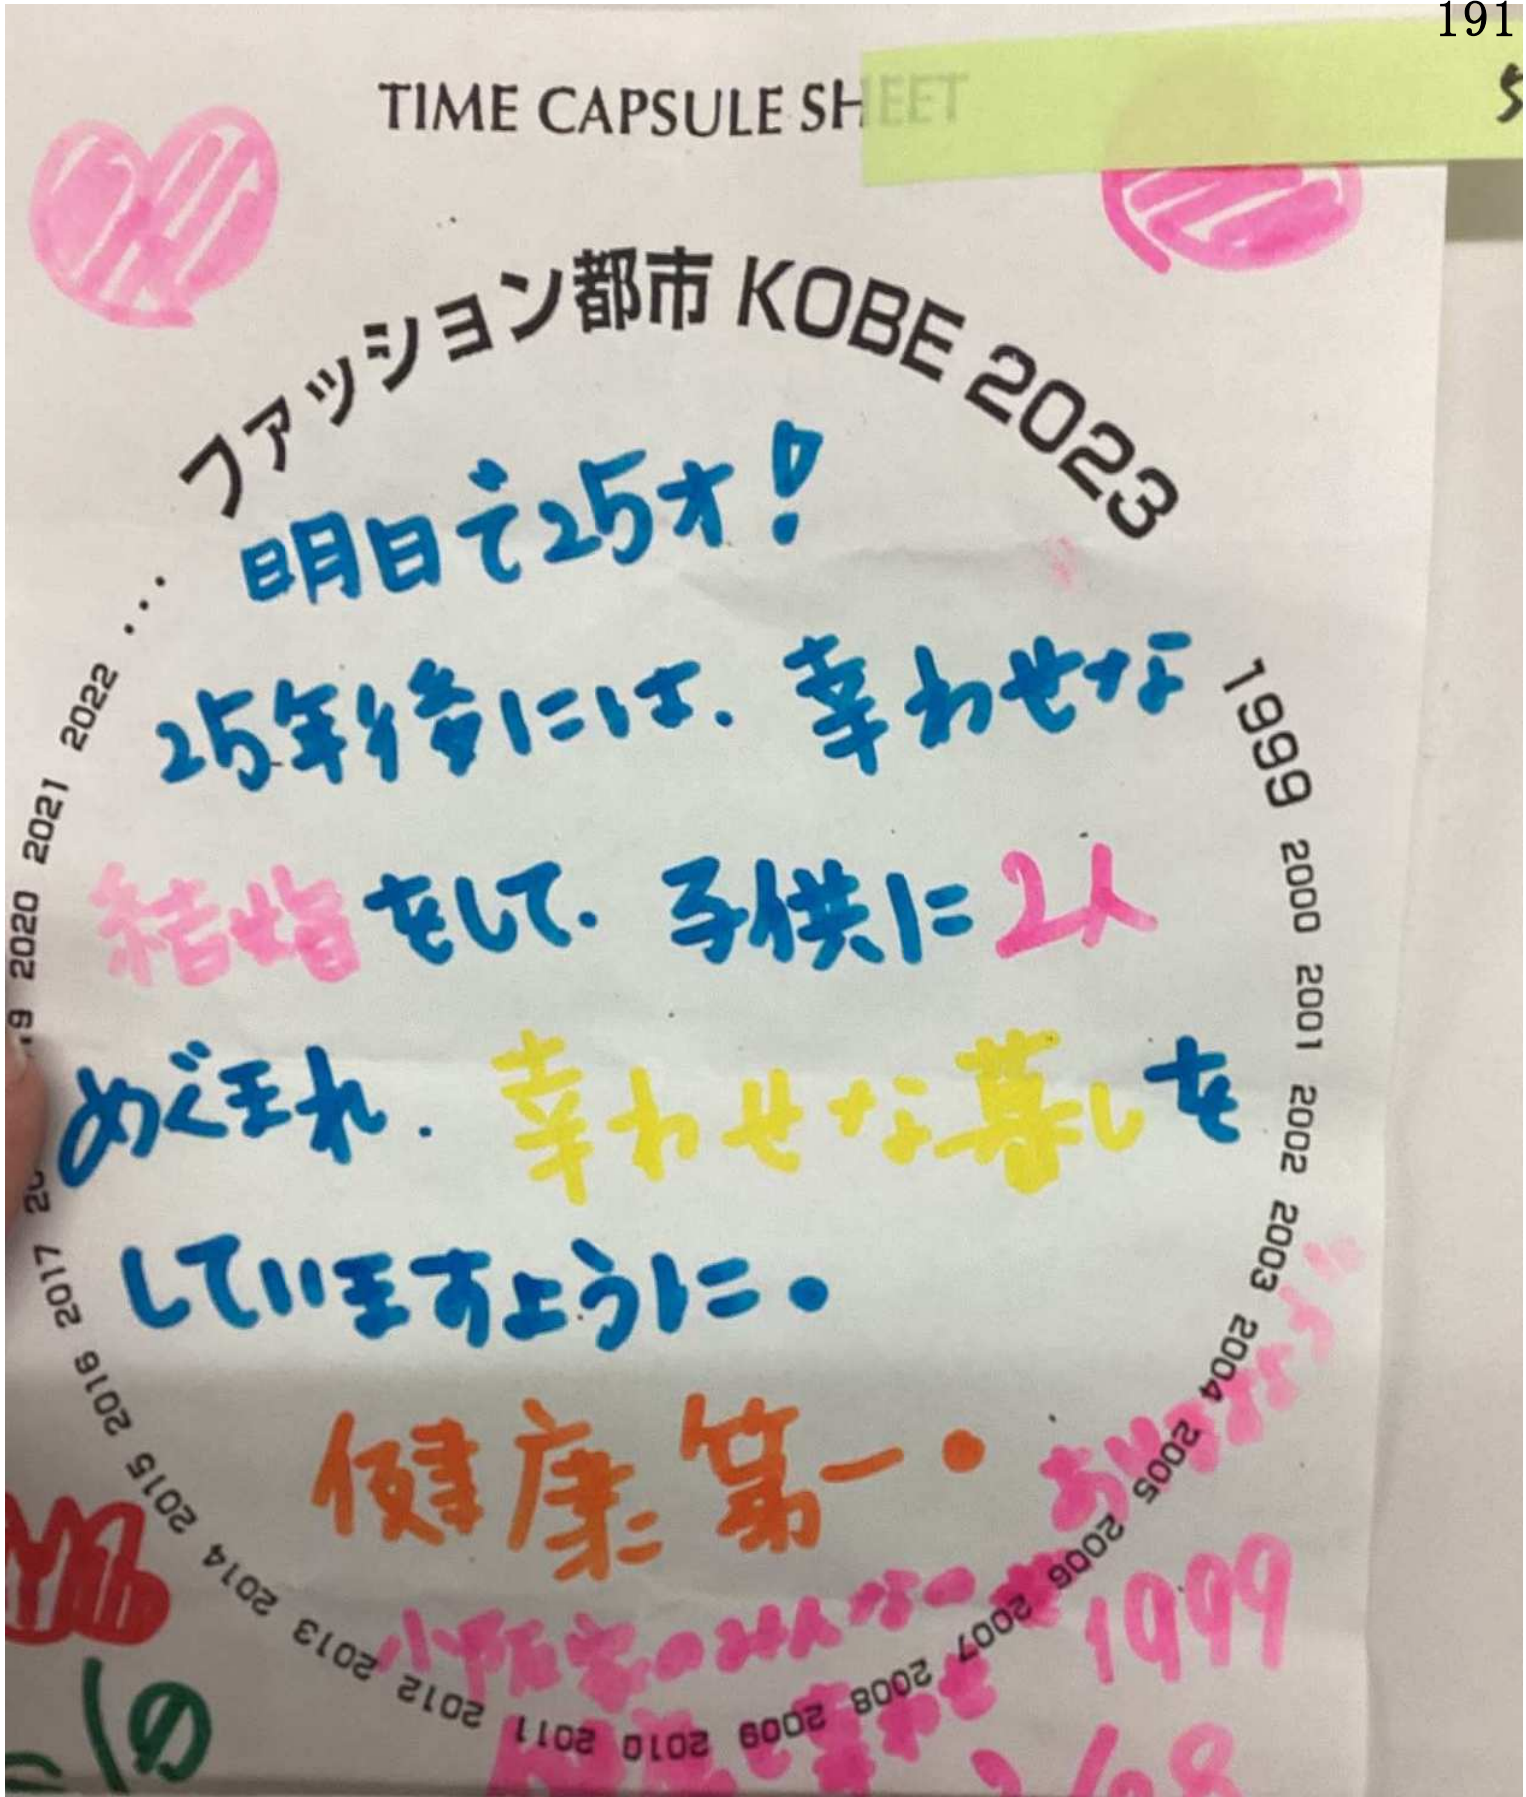 191
5
TIME CAPSULE SHEET
ファッション都市 KOBE 2023
1999 2000 2001 2002 2003 2004 2005 2006 2007 2008 2009 2010 2011 2012 2013 2014 2015 2016 2017
2020 2021 2022 ...
明日で25才!
25年後には、幸わせな
結婚をして、子供に2人
めぐまれ、幸わせな暮しを
していますように。
健康第一。
1999
の